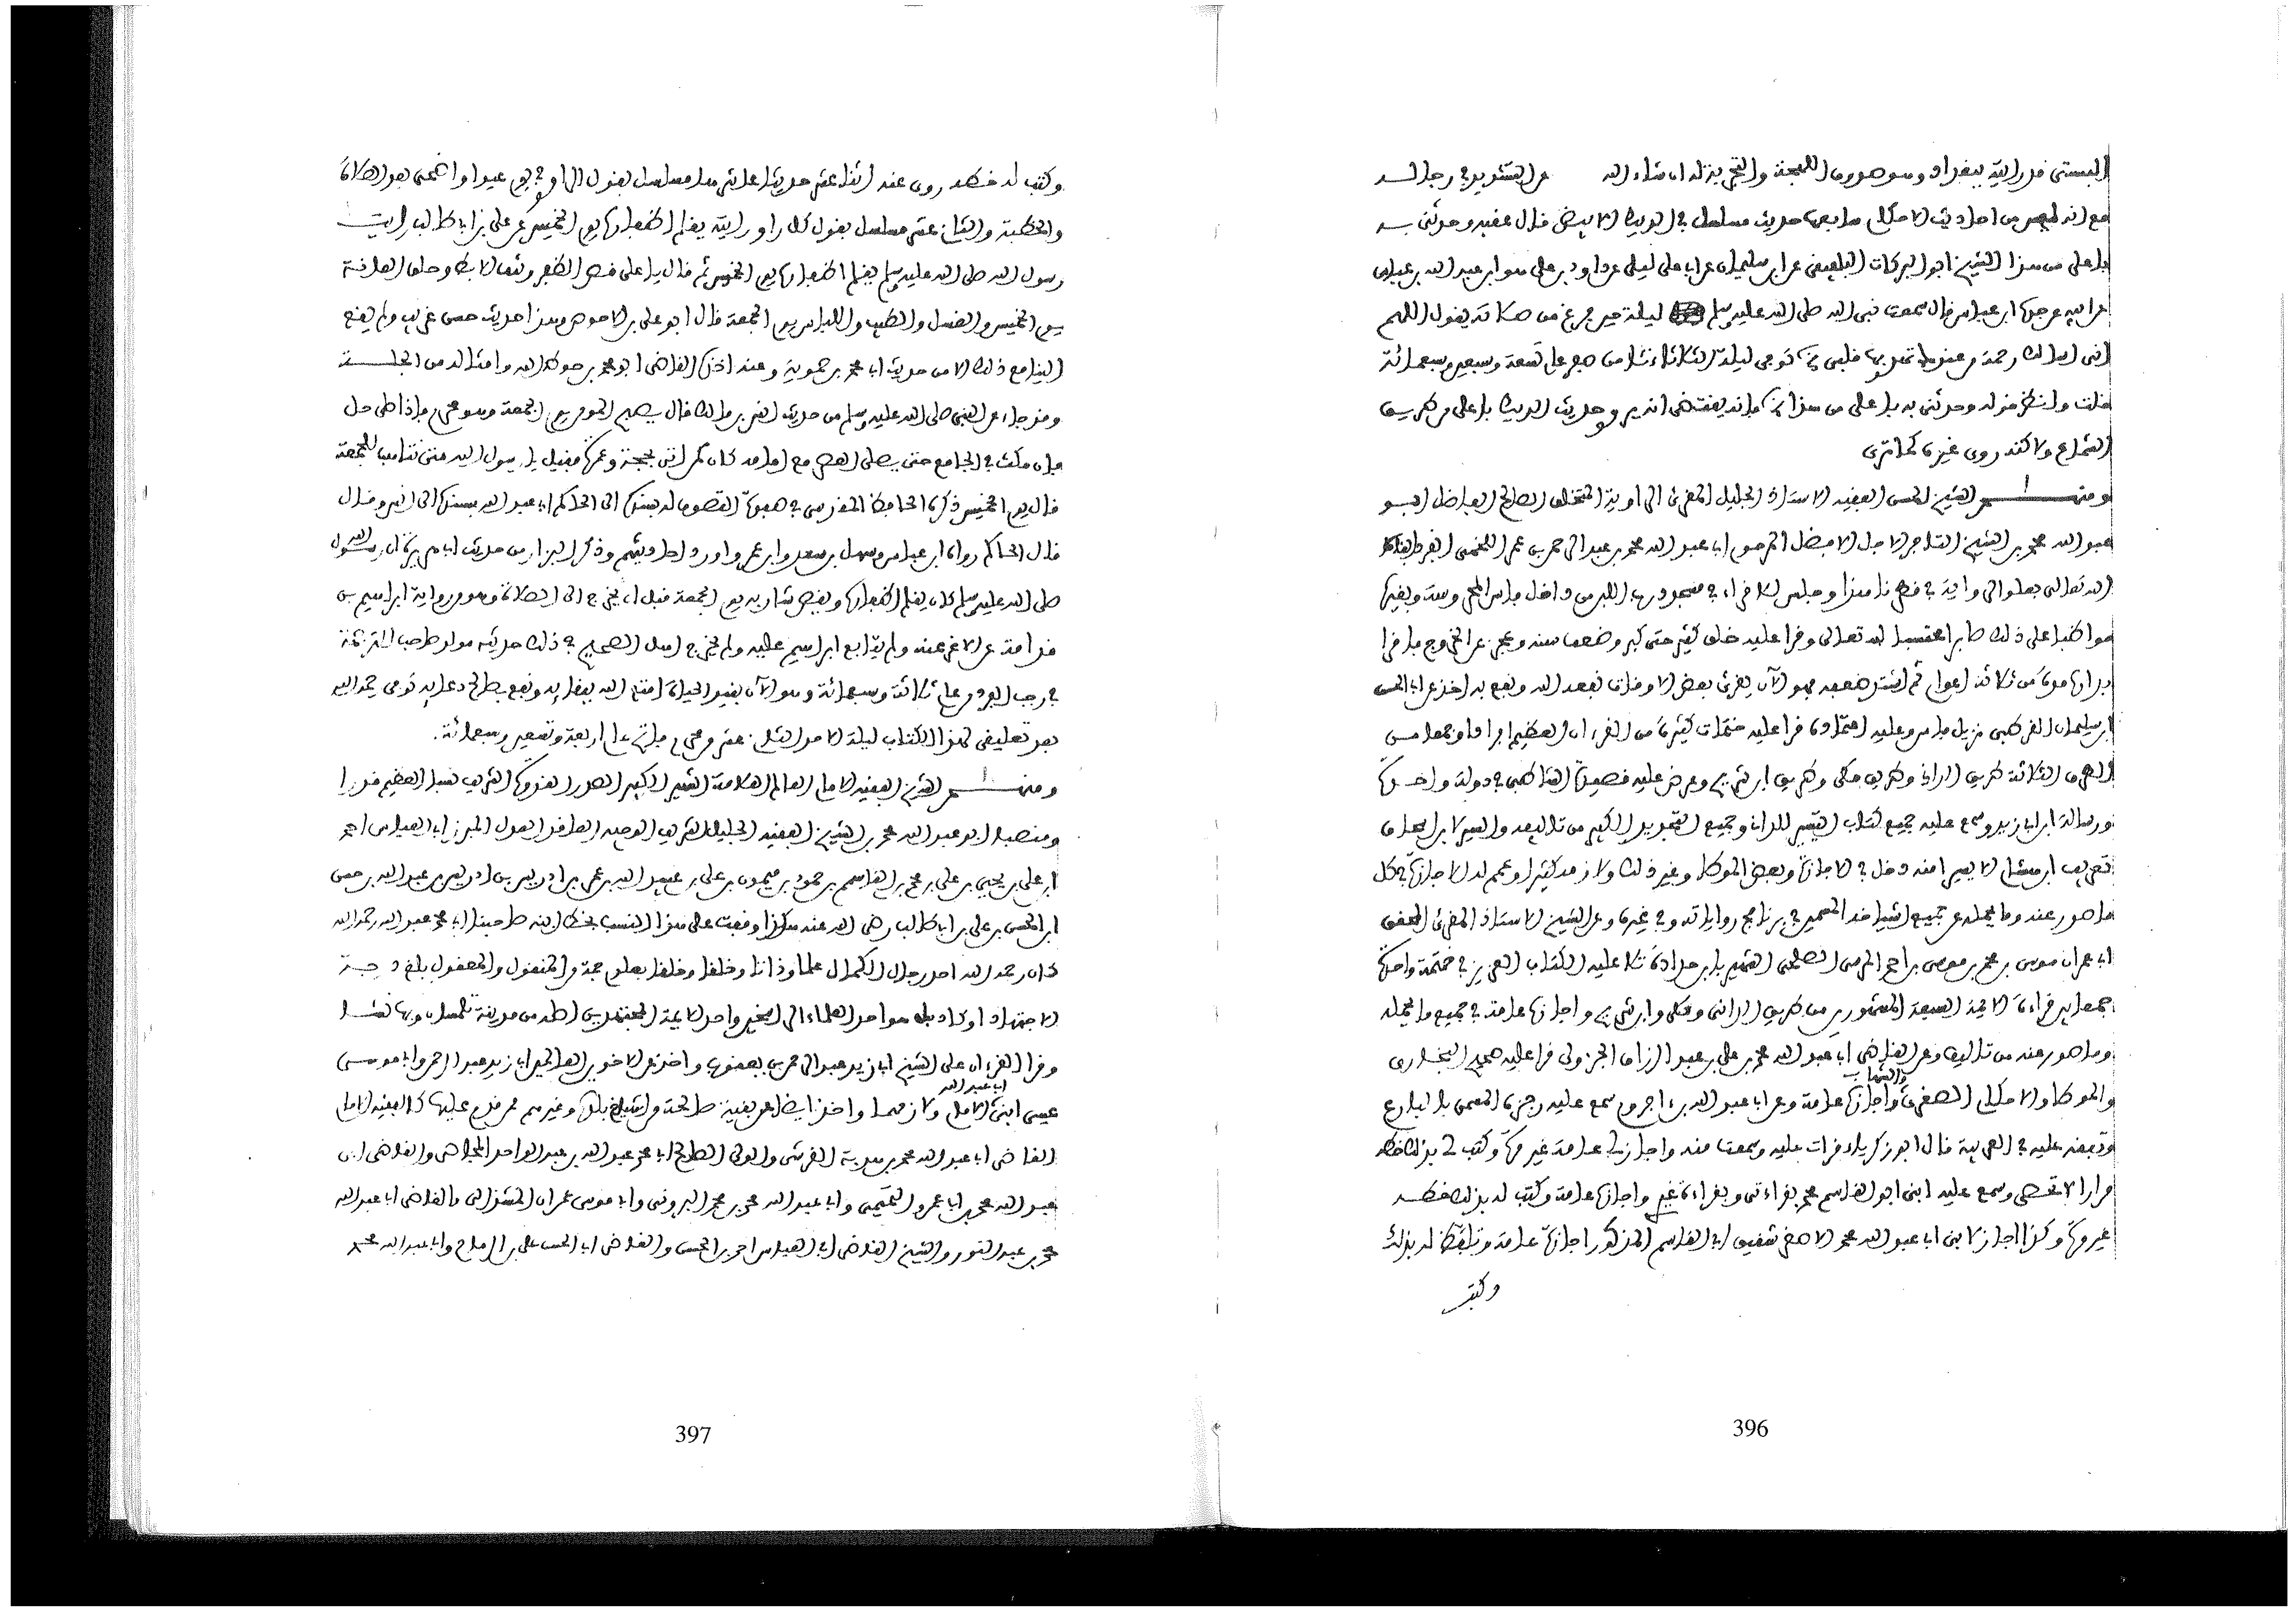 البستي قد رايته ببغداد وهو صدوق اللهجة والتجربة له ان شاء الله عن التشديد في رجاله
مع انه ليس من احاديث الاحكام ما بعها حديث مسلسل في الديك الابيض قال عقبه وحدثني به
باعلى من هذا الشيخ ابو البركات البلفيقي عن ابن سليمان عن ابي علي ليلى عن داود بن علي هو ابن عبد الله بن عباس
عن ابيه عن جده ابن عباس قال سمعت نبي الله صلى الله عليه وسلم ليلة حين فرغ من صلاته يقول اللهم
اني اسالك رحمة من عندك تهدي بها قلبي توفي ليلة الثلاثاء من صفر عام تسعة وسبعين وسبعمائة
قلت وانظر قوله وحدثني به باعلى من هذا فانه يقتضي انه يروي حديث الديك باعلى من طريق
الشماع ولاكنه روى غيره كما ترى
ومنهم الشيخ المسن الفقيه الاستاذ الجليل المقرئ الراوية المتخلق الصالح الفاضل ابو
عبد الله محمد بن الشيخ التاجر الاجل الافضل المرحوم ابي عبد الله محمد بن عبد الرحمن بن عمر اللخمي القرطبي
الله تعالى بعلو الرواية في قطرنا هذا وجلس للاقراء في مسجد درب اللبن من داخل فاس المحروسة وبغيره
مواظبا على ذلك صابرا محتسبا لله تعالى وقرا عليه خلق كثير حتى كبر وضعف سنه وعجز عن الخروج فاقرا
بداره مدة من ثلاثة اعوام ثم اشتد ضعفه فهو الآن يقرئ بعض الاوقات نفعه الله ونفع به اخذ عن ابي الحسن
ابن سليمان القرطبي نزيل فاس وعليه اعتماده قرا عليه ختمات كثيرة من القرءان العظيم افرادا وجمعا من
الطرق الثلاثة طريق الداني وطريق مكي وطريق ابن شريح وعرض عليه قصيدة الشاطبي في دولة واحدة
ورسالة ابن ابي زيد وسمع عليه جميع كتاب التيسير للداني وجميع التجريد الكبير من تاليفه والسير لابن اسحاق
تهذيب ابن هشام الا يسيرا منه دخل في الاجازة وبعض الموطا وغير ذلك ولازمه كثيرا وعمم له الاجازة في كل
ما صدر عنه وما يحمله عن جميع اشياخه المسمين في برنامج رواياته وفي غيره وعن الشيخ الاستاذ المقرئ المحقق
ابي عمران موسى بن محمد بن موسى بن احمد المرسي الصلحي الشهير بابن حدادة تلا عليه الكتاب العزيز في ختمة واحدة
جمعا بين قراءة الايمة السبعة المشهورين من طريق الداني ومكي وابن شريح واجازه عامة في جميع ما يحمله
وما صدر عنه من تاليف وعن القاضي ابي عبد الله محمد بن علي بن عبد الرزاق الجزولي قرا عليه صحيح البخاري
والموطا والاحكام الصغرى والشهاب واجازه عامة وعن ابي عبد الله بن ءاجروم سمع عليه رجزه المسمى بالبارع
وتفقه عليه في العربية قال ابو زكرياء قرات عليه وسمعت منه واجاز لي عامة غير مرة وكتب لي بذلك خطه
مرارا لا تحصى وسمع عليه ابني ابو القاسم محمد بقراءتي وبقراءة غيري واجازه عامة وكتب له بذلك خطه
غير مرة وكذا اجاز لابني ابي عبد الله محمد الاصغر شقيق ابي القاسم المذكور اجازة عامة وتلفظ له بذلك
وكتب
396
وكتب له خطه روى عنه اثنا عشر حديثا عاشرها مسلسل بقول الراوي في يوم عيد او اضحى بعد الصلاة
والخطبة والثاني عشر مسلسل بقول كل راو رايته يقلم اظفاره يوم الخميس عن علي بن ابي طالب رايت
رسول الله صلى الله عليه وسلم يقلم اظفاره يوم الخميس ثم قال يا علي قص الظفر ونتف الابط وحلق العانة
يوم الخميس والغسل والطيب واللباس يوم الجمعة قال ابو علي بن الاحوص وهذا حديث حسن غريب ولم يقع
الينا مع ذلك الا من حديث ابي محمد بن حموية وعنه اخذه القاضي ابو محمد بن حوط الله وامثاله من الجلة
وقد جاء عن النبي صلى الله عليه وسلم من حديث انس بن مالك قال يصبح المومن يوم الجمعة وهو محرم فاذا صلى حل
فان مكث في الجامع حتى يصلي العصر مع امامه كان كمن اتى بحجة وعمرة فقيل يا رسول الله متى نتاهب للجمعة
قال يوم الخميس ذكره الحافظ المقدسي في صفوة التصوف له بسنده الى الحاكم ابي عبد الله بسنده الى انس وقال
قال الحاكم رواه ابن عباس وسهل بن سعد وابن عمر واورد احاديثهم وذكر البزار من حديث ابي هريرة ان رسول الله
صلى الله عليه وسلم كان يقلم اظفاره ويقص شاربه يوم الجمعة قبل ان يخرج الى الصلاة وهو من رواية ابراهيم بن
قدامة عن الاغر عنه ولم يتابع ابراهيم عليه ولم يخرج اهل الصحيح في ذلك حديثه مولد صاحب الترجمة
في رجب الفرد من عام ثلاثة وسبعمائة وهو الآن بقيد الحياة امتع الله ببقائه ونفع بصالح دعائه توفي رحمه الله
بعد تعليقي لهذا الكتاب ليلة الاحد الثاني عشر من محرم فاتح عام اربعة وتسعين وسبعمائة.
ومنهم الشيخ الفقيه الامام العالم العلامة الشهير الكبير الصدر القدوة الشريف نسبا العظيم قدرا
ومنصبا ابو عبد الله محمد بن الشيخ الفقيه الجليل الشريف الوجيه العاقد العدل المبرز ابي العباس احمد
ابن علي بن يحيى بن علي بن محمد بن القاسم بن حمود بن ميمون بن علي بن عبيد الله بن عمر بن ادريس بن ادريس بن عبد الله بن حسن
ابن الحسن بن علي بن ابي طالب رضي الله عنه هكذا وقفت على هذا النسب بخط ابنه صاحبنا ابي محمد عبد الله رحمه الله
كان رحمه الله احد رجال الكمال علما وذاتا وخلقا وخلقا بعلوم جمة من المنقول والمعقول بلغ درجة
الاجتهاد او كاد بل هو احد العلماء الراسخين واحد الايمة المجتهدين اصله من مدينة تلمسان وبها نشا
وقرا القرءان على الشيخ ابي زيد عبد الرحمن بن يعقوب واخذ عن الاخوين العالمين ابي زيد عبد الرحمن وابي موسى
عيسى ابني الامام ولازمهما واخذ ايضا عن بقية صالحة من اشياخ بلده وغيرهم ممن قدم عليها كالفقيه الامام
القاضي ابي عبد الله محمد بن هدية القرشي والولي الصالح ابي محمد عبد الله بن عبد الواحد المجاصي والقاضي ابي
عبد الله محمد بن ابي عمرو التميمي وابي عبد الله محمد بن محمد البروني وابي موسى عمران المشذالي والقاضي ابي عبد الله
محمد بن عبد النور والشيخ القاضي ابي العباس احمد بن الحسن والقاضي ابي الحسن علي بن الرماح وابي عبد الله محمد
397